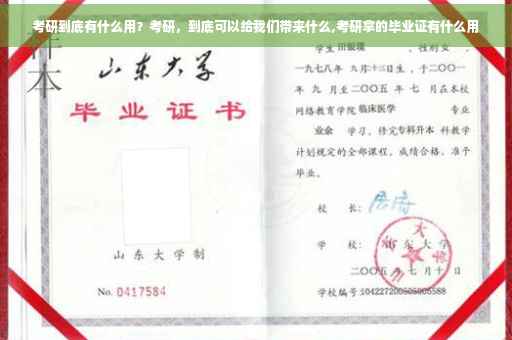 考研到底有什么用？考研，到底可以给我们带来什么,考研拿的毕业证有什么用
样本
山东大学
毕业证书
山东大学制
No. 0417584
学生 田银環 ，性别女 ，
一九七八年 九月十三日生，于二〇〇一
年 九 月至二〇〇五 年 七 月在本校
网络教育学院 临床医学 专业
业余 学习，修完专科升本 科教学
计划规定的全部课程，成绩合格，准予
毕业。
校 长：
学 校： 山东大学
二〇〇五 年 七 月 十 日
学校编号:104227200505005588